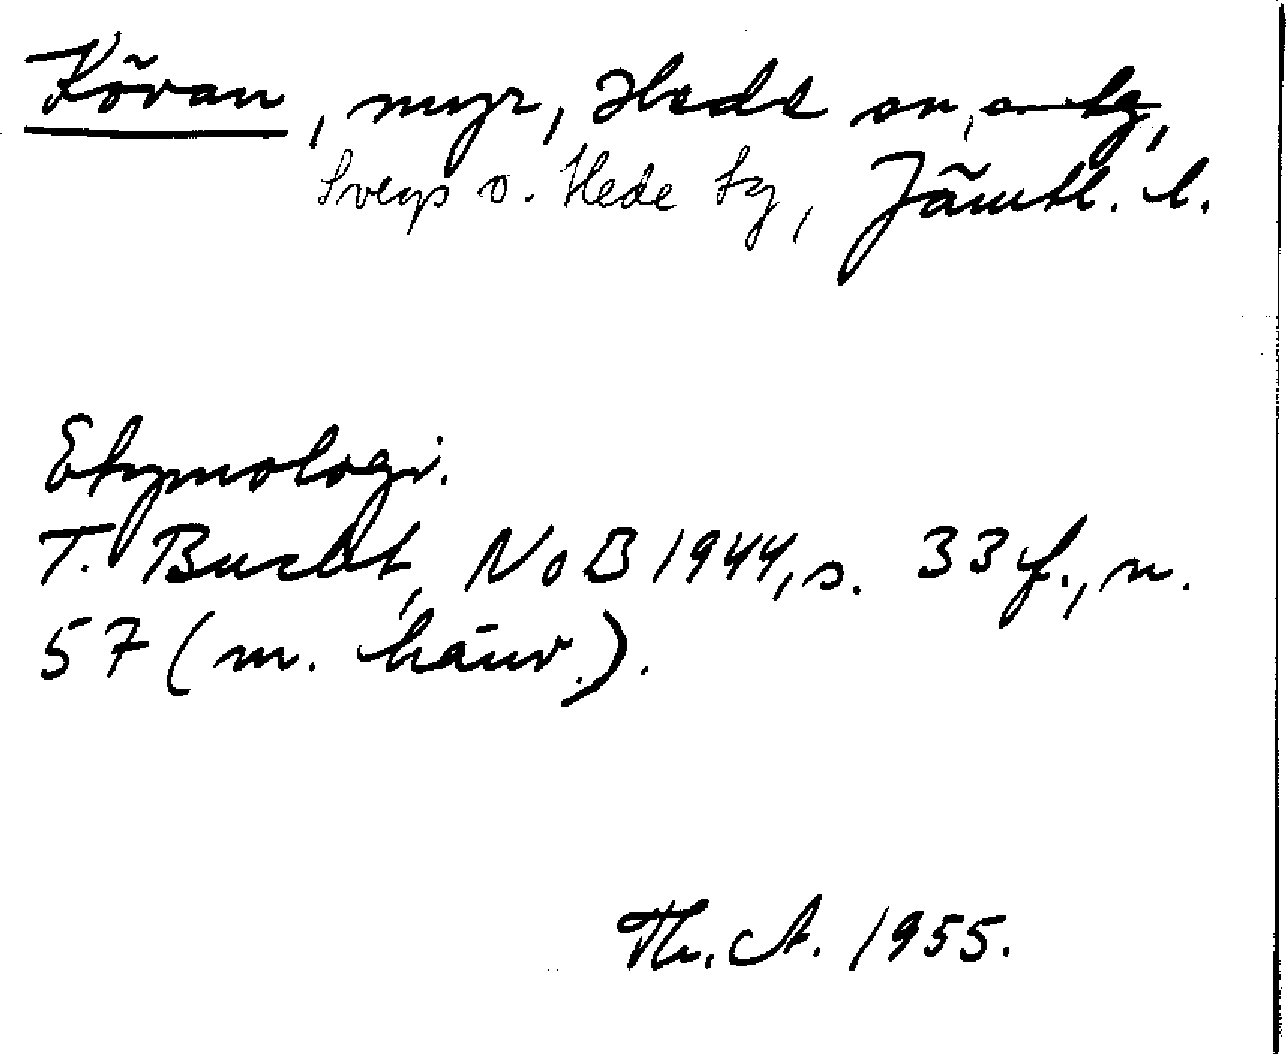 Kövan, myr, Hede sn, o. tg,
Svegs o. Hede tg, Jämtl. l.
Etymologi.
T. Bucht, NoB 1944, s. 33 f., n.
57 (m. hänv.).
Th. A. 1955.